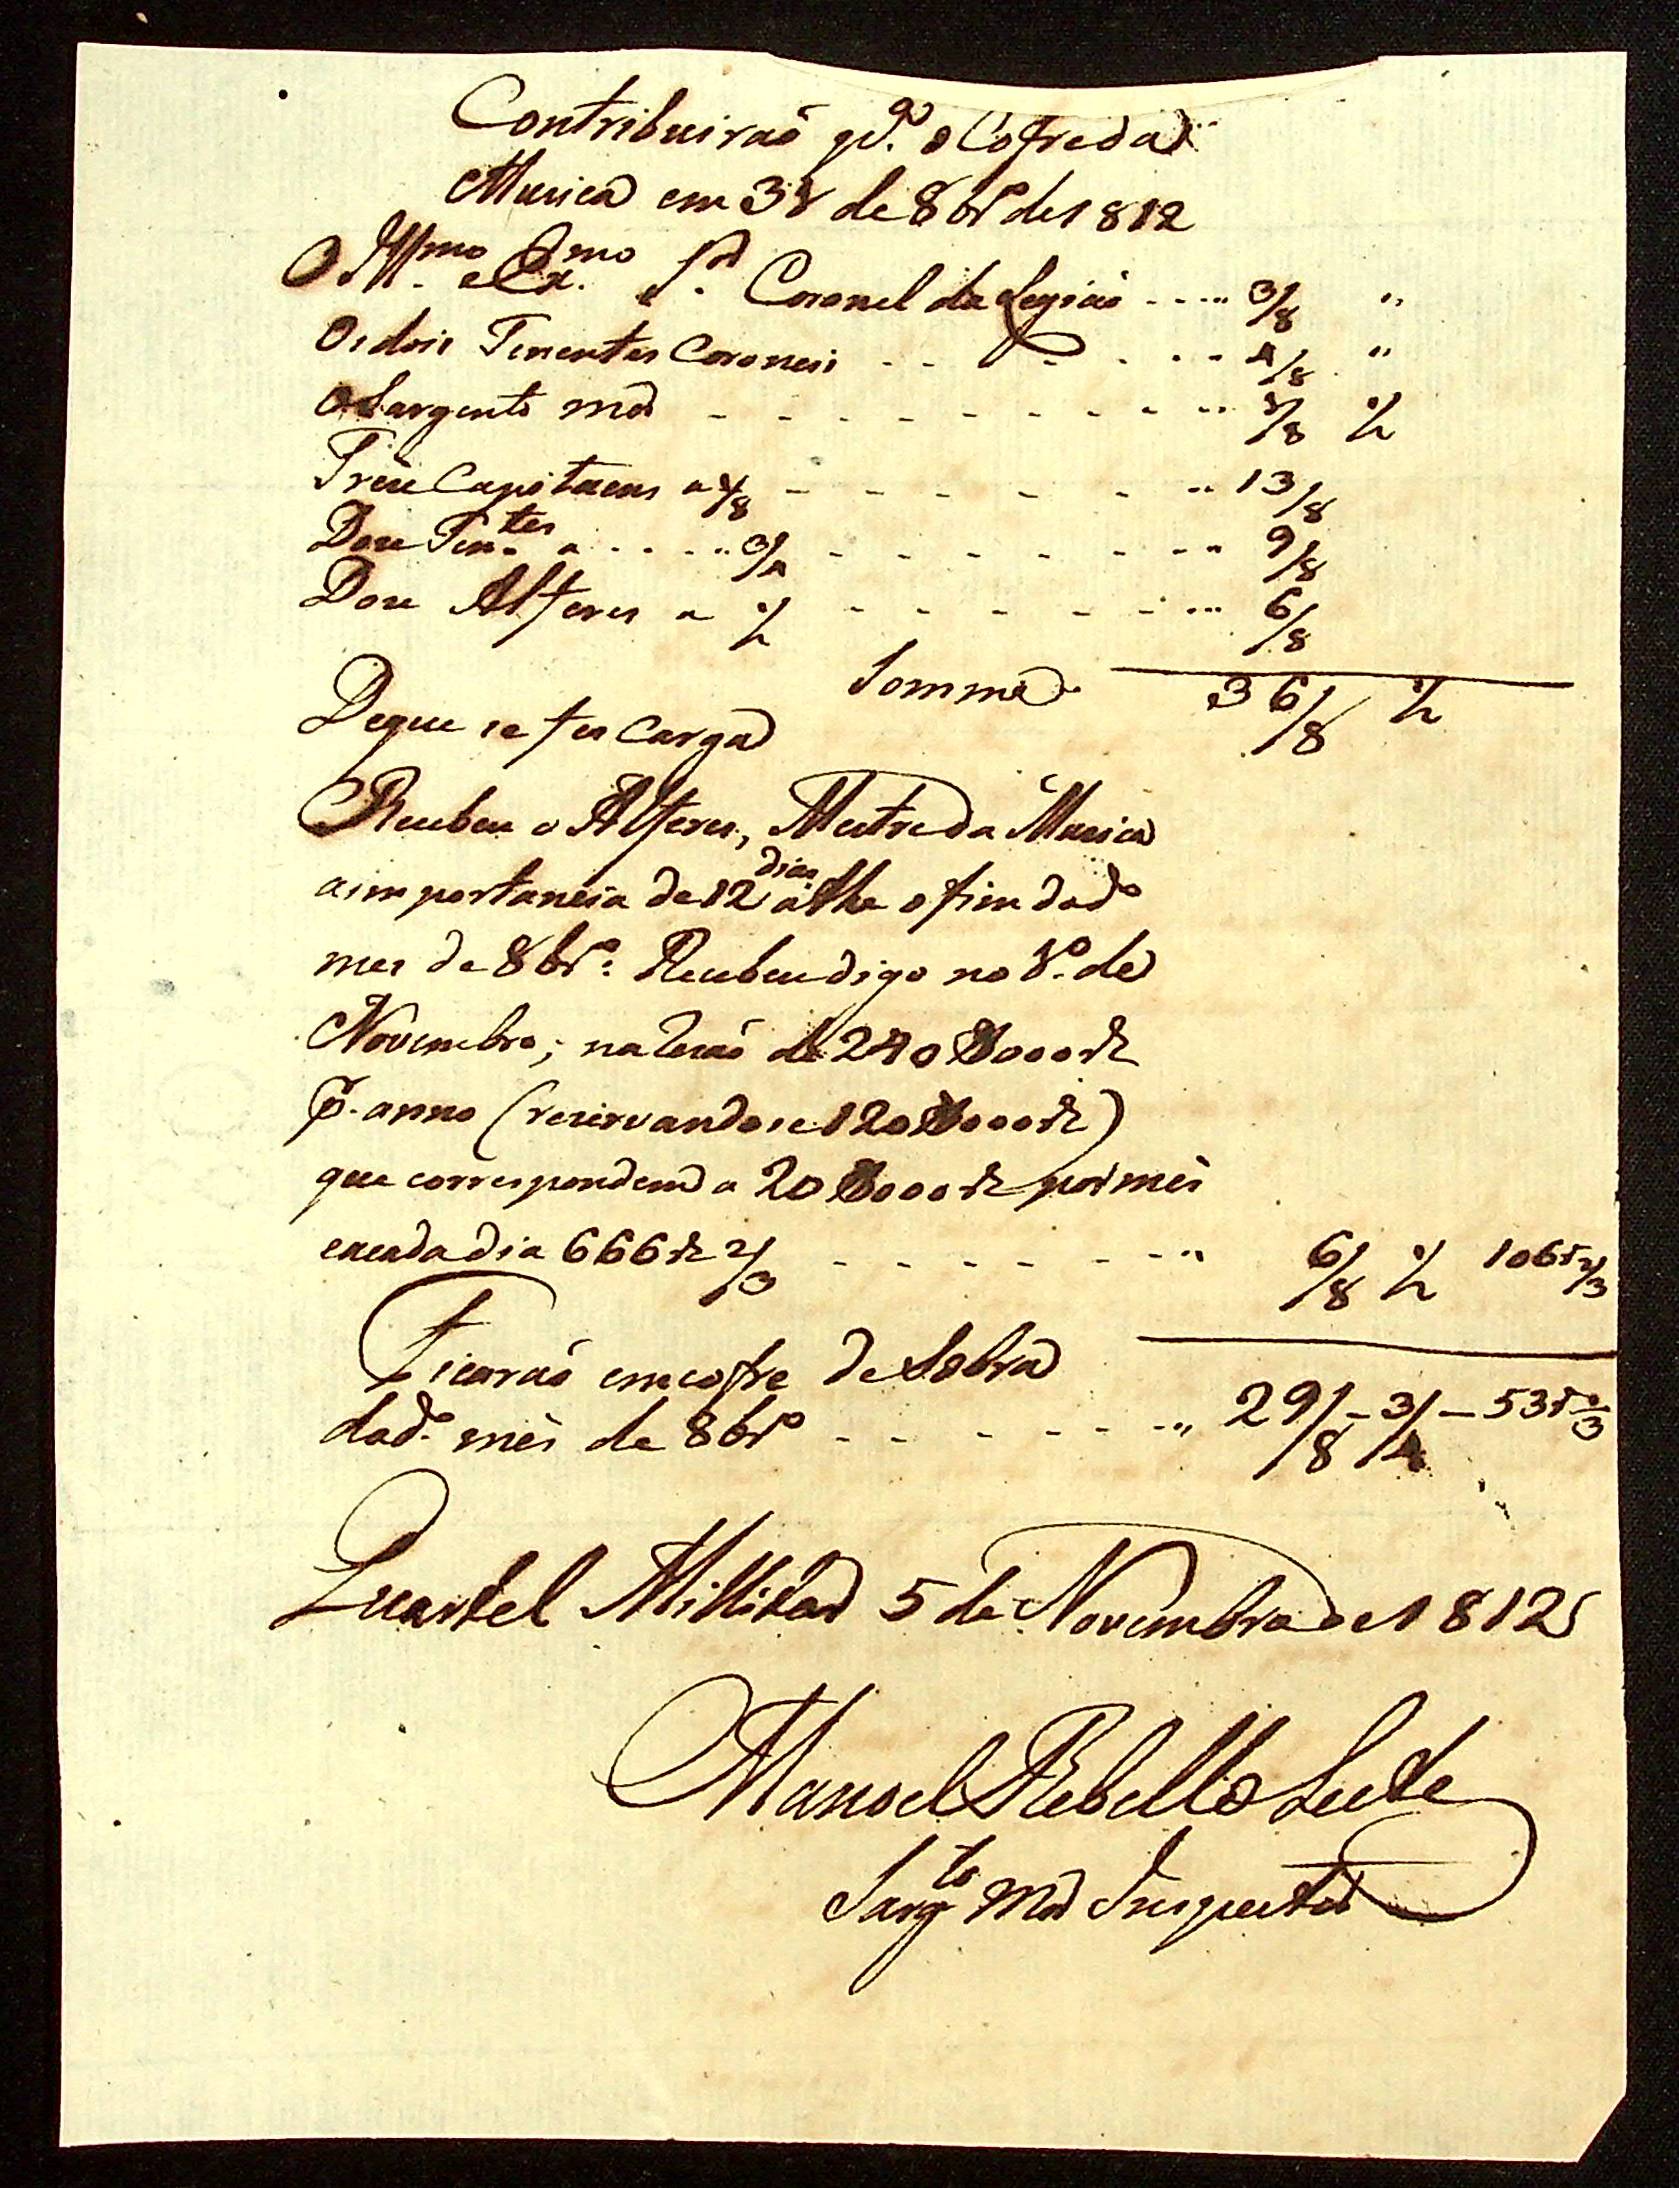 Contribuiraõ pª. o Cofre da
Musica em 31 de 8brº de 1812
O Illmo. e Exmo. Sor. Coronel da Legiaõ - - - - 3/8 "
Os dois Tenentes Coroneis - - - - - - 4/8 "
O Sargento mor - - - - - - - - - 1/8 1/2
Treze Capitaens a 1/8 - - - - - - - 13/8
Doze Tentes. a - - - - 3/4 - - - - - - - 9/8
Doze Alferes a 1/2 - - - - - - - 6/8
Somma 36/8 1/2
De que se fes Carga
Recebeu o Alferes, Mestre da Musica
a importancia de 12 dias athe o fim do dº
mes de 8brº: Recebeu digo no 1º. de
Novembro; na rezaõ de 240$000 rs
p. anno (rezervandose 120$000 rs)
que correspondem a 20$000 rs por mês
e cada dia 666 rs 2/3 - - - - - - - 6/8 1/2 106 r 2/3
Ficaraõ em cofre de Sobra
do dº. mês de 8brº - - - - - - - 29/8 - 3/4 - 53 r 1/3
Quartel Millitar 5 de Novembro de 1812
Manoel Rebello Leite
Sargto Mor Inspector